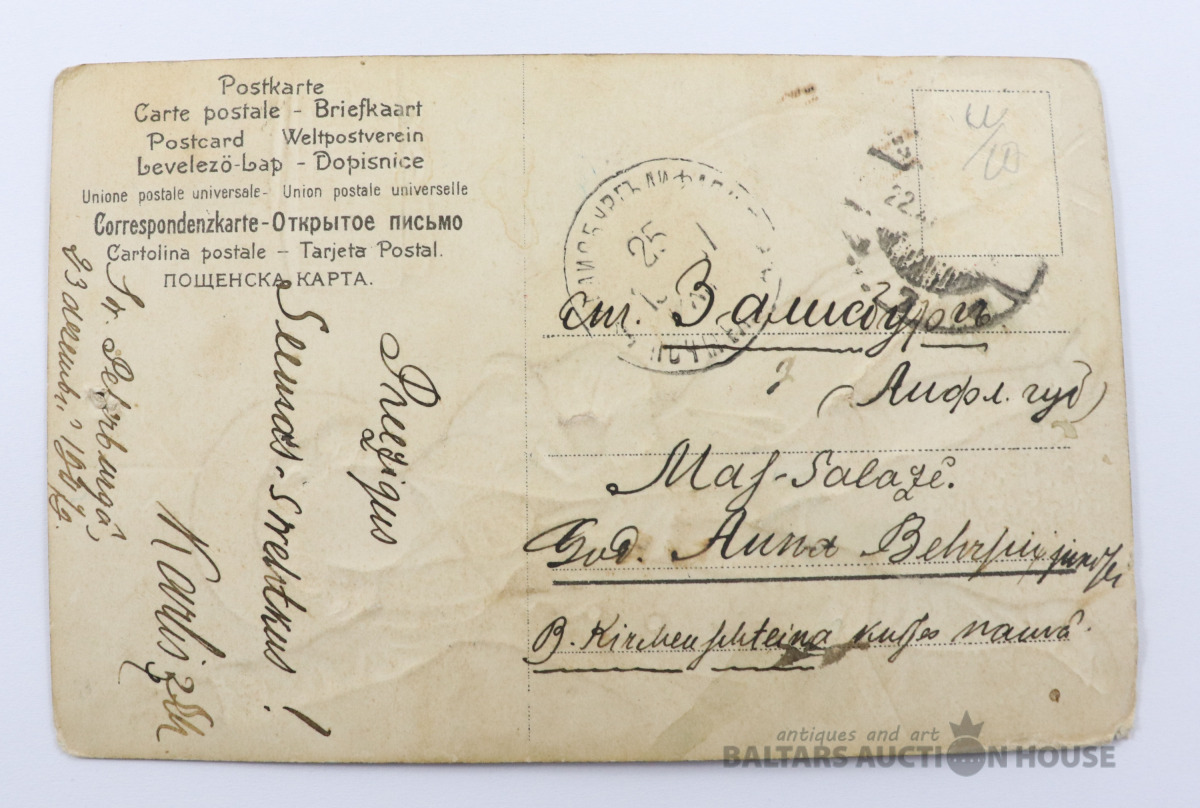 Postkarte
Carte postale - Briefkaart
Postcard Weltpostverein
Levelező-Lap - Dopisnice
Unione postale universale - Union postale universelle
Correspondenzkarte - Открытое письмо
Cartolina postale - Tarjeta Postal.
ПОЩЕНСКА КАРТА.
St. Peterburgâ,
23 decembrî
Preezigus
Seemas-svehtkus!
Karlis
25
22
ст. Залисбургъ
(Лифл. губ)
Mas-Salazê.
God. Anna Behrsin
B. Kirchenschteina namâ.
antiques and art
BALTARS AUCTION HOUSE